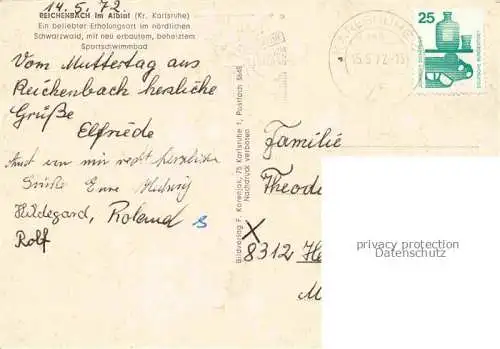 14.5.72.
REICHENBACH im Albtal (Kr. Karlsruhe)
Ein beliebter Erholungsort im nördlichen
Schwarzwald, mit neu erbautem, beheiztem
Sportschwimmbad
Vom Muttertag aus
Reichenbach herzliche
Grüße
Elfriede
Auch von mir recht herzliche
Grüße Eure Hedwig
Hildegard, Roland
Rolf
Bildverlag F. Korenjak, 75 Karlsruhe 1, Postfach 5645
Nachdruck verboten
KARLSRUHE
15.5.72-15
25
DEUTSCHE BUNDESPOST
Familie
Theodo
X
8312
privacy protection
Datenschutz